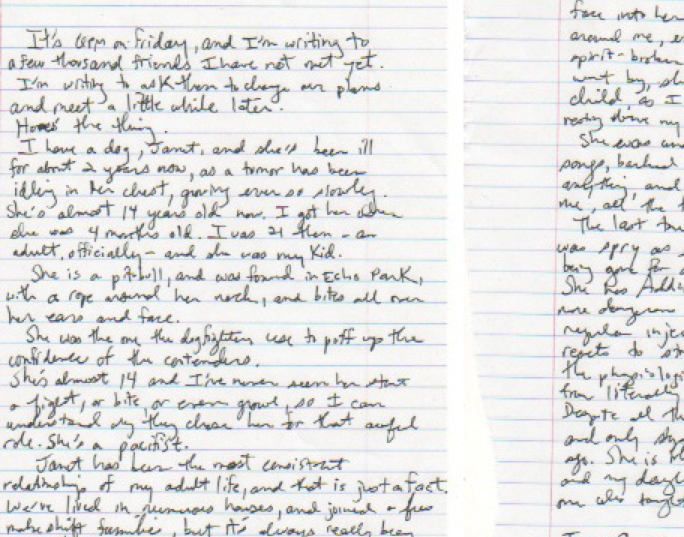 It's 6pm on Friday, and I'm writing to
a few thousand friends I have not met yet.
I'm writing to ask them to change our plans
and meet a little while later.
Here's the thing.
I have a dog, Janet, and she's been ill
for about 2 years now, as a tumor has been
idling in her chest, growing ever so slowly.
She's almost 14 years old now. I got her when
she was 4 months old. I was 21 then - an
adult, officially - and she was my kid.
She is a pitbull, and was found in Echo Park,
with a rope around her neck, and bites all over
her ears and face.
She was the one the dogfighters use to puff up the
confidence of the contenders.
She's almost 14 and I've never seen her start
a fight, or bite, or even growl, so I can
understand why they chose her for that awful
role. She's a pacifist.
Janet has been the most consistent
relationship of my adult life, and that is just a fact.
We've lived in numerous houses, and joined a few
makeshift families, but it's always really been
face into her
around me, e
spirit-broken
went by, sh
child, as I
resting above my
She was un
songs, barked
anything, and
me, all the t
The last time
was spry as
being gone for a
She has Addi
more dangerous
regular injec
reacts to str
the physiologi
from literally
Despite all th
and only
ago. She is
and my daugh
one who taught